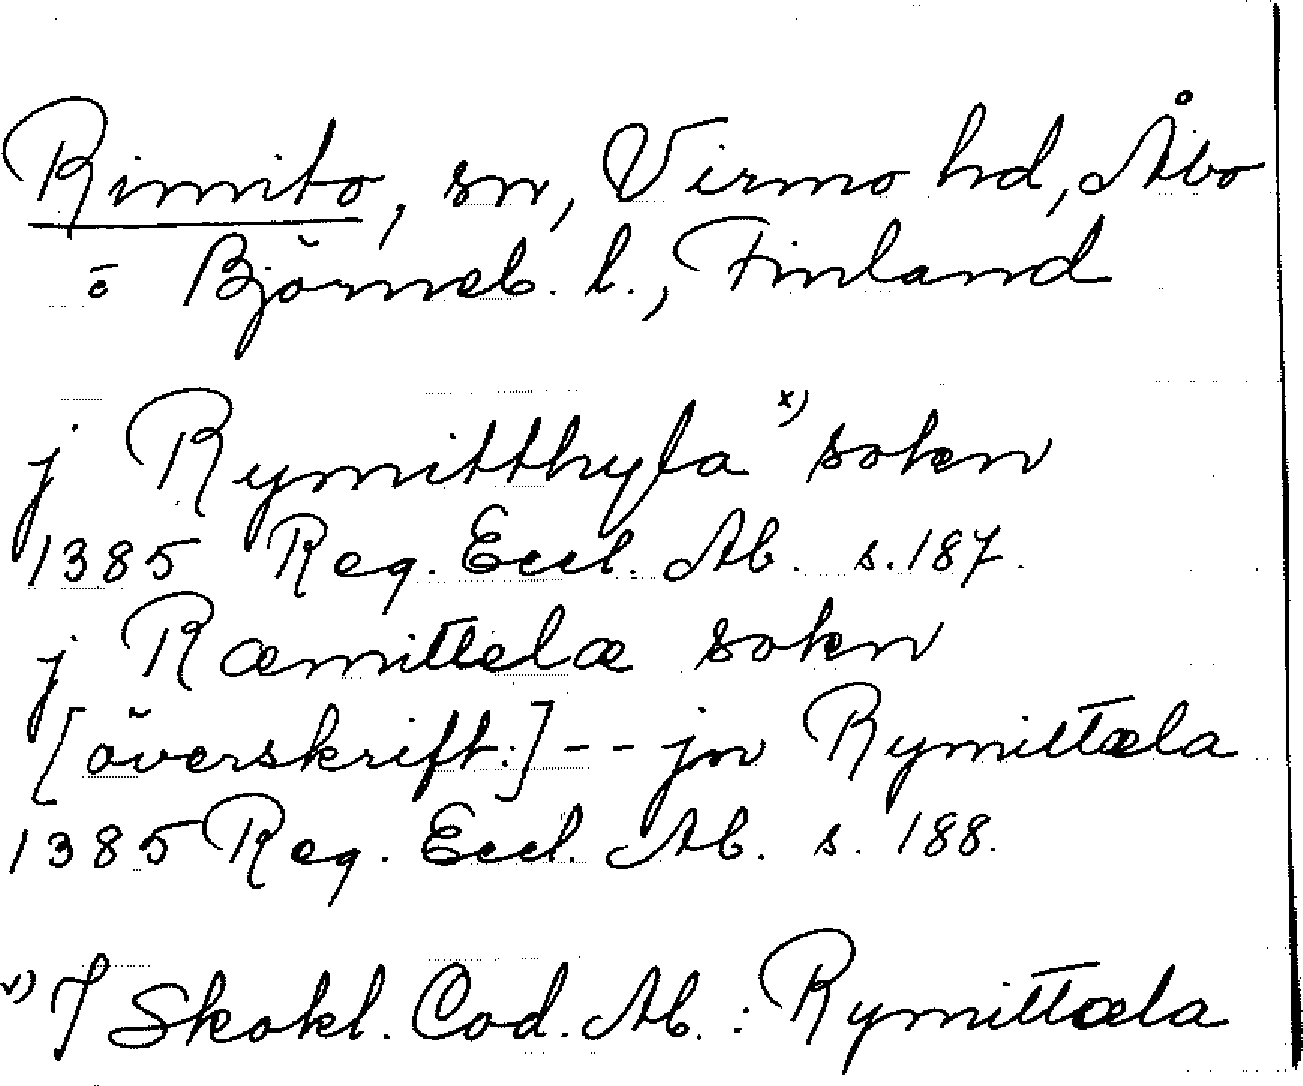 Rimito, sn, Virmo hd, Åbo
o Björneb. l., Finland
j Rymitthyla x) sokn
1385 Reg. Eccl. Ab. s. 187.
j Ræmittelæ sokn
[överskrift.] -- jn Rymittæla
1385 Reg. Eccl. Ab. s. 188.
x) I Skokl. Cod. Ab. : Rymittæla